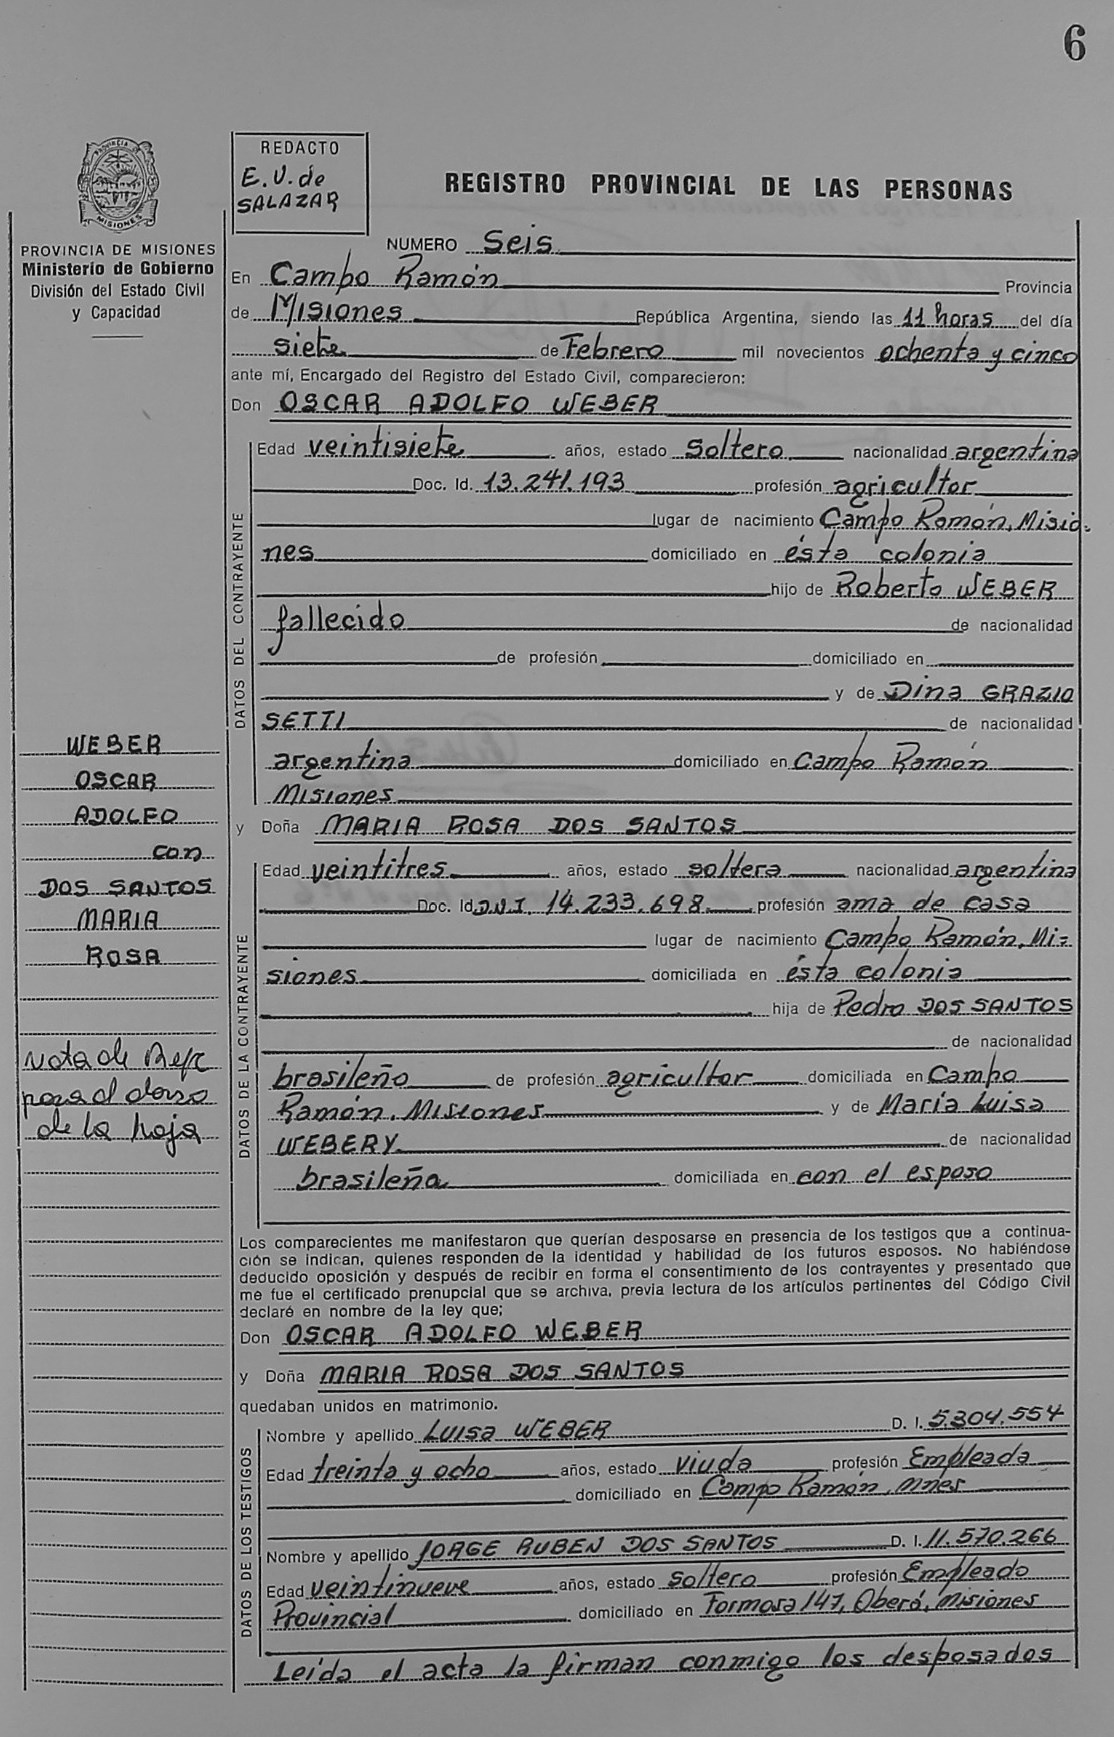 6
PROVINCIA DE
MISIONES
REDACTO
E.V. de
SALAZAR
REGISTRO PROVINCIAL DE LAS PERSONAS
PROVINCIA DE MISIONES
Ministerio de Gobierno
División del Estado Civil
y Capacidad
NUMERO Seis
En Campo Ramón Provincia
de Misiones República Argentina, siendo las 11 horas del día
siete de Febrero mil novecientos ochenta y cinco
ante mí, Encargado del Registro del Estado Civil, comparecieron:
Don OSCAR ADOLFO WEBER
DATOS DEL CONTRAYENTE
Edad veintisiete años, estado soltero nacionalidad argentina
Doc. Id. 13.241.193 profesión agricultor
lugar de nacimiento Campo Ramón, Misio-
nes domiciliado en ésta colonia
hijo de Roberto WEBER
fallecido de nacionalidad
de profesión domiciliado en
y de Dina GRAZIO
SETTI de nacionalidad
argentina domiciliado en Campo Ramón
Misiones
WEBER
OSCAR
ADOLFO
con
DOS SANTOS
MARIA
ROSA
Nota de
para al dorso
de la hoja
y Doña MARIA ROSA DOS SANTOS
DATOS DE LA CONTRAYENTE
Edad veintitres años, estado soltera nacionalidad argentina
Doc. Id D.N.I. 14.233.698 profesión ama de casa
lugar de nacimiento Campo Ramón, Mi-
siones domiciliada en ésta colonia
hija de Pedro DOS SANTOS
de nacionalidad
brasileño de profesión agricultor domiciliada en Campo
Ramón. Misiones y de María Luisa
WEBERY de nacionalidad
brasileña domiciliada en con el esposo
Los comparecientes me manifestaron que querían desposarse en presencia de los testigos que a continua-
ción se indican, quienes responden de la identidad y habilidad de los futuros esposos. No habiéndose
deducido oposición y después de recibir en forma el consentimiento de los contrayentes y presentado que
me fue el certificado prenupcial que se archiva, previa lectura de los artículos pertinentes del Código Civil
declaré en nombre de la ley que;
Don OSCAR ADOLFO WEBER
y Doña MARIA ROSA DOS SANTOS
quedaban unidos en matrimonio.
DATOS DE LOS TESTIGOS
Nombre y apellido LUISA WEBER D. I. 5.304.554
Edad treinta y ocho años, estado viuda profesión Empleada
domiciliado en Campo Ramón, Mnes
Nombre y apellido JORGE RUBEN DOS SANTOS D. I. 11.570.266
Edad veintinueve años, estado soltero profesión Empleado
Provincial domiciliado en Formosa 147, Oberá, Misiones
Leída el acta la firman conmigo los desposados